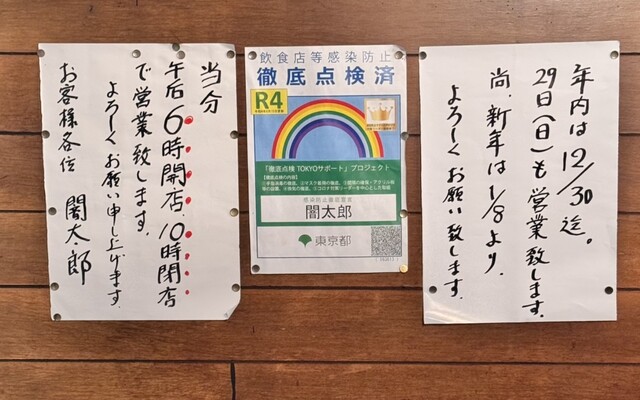 当分
午后6時開店、10時閉店
で営業致します。
よろしくお願い申し上げます。
お客様各位 闇太郎
飲食店等感染防止
徹底点検済
R4
「徹底点検 TOKYOサポート」プロジェクト
感染防止徹底宣言
闇太郎
東京都
年内は12/30迄。
29日(日)も営業致します。
尚、新年は1/8より、
よろしくお願い致します。